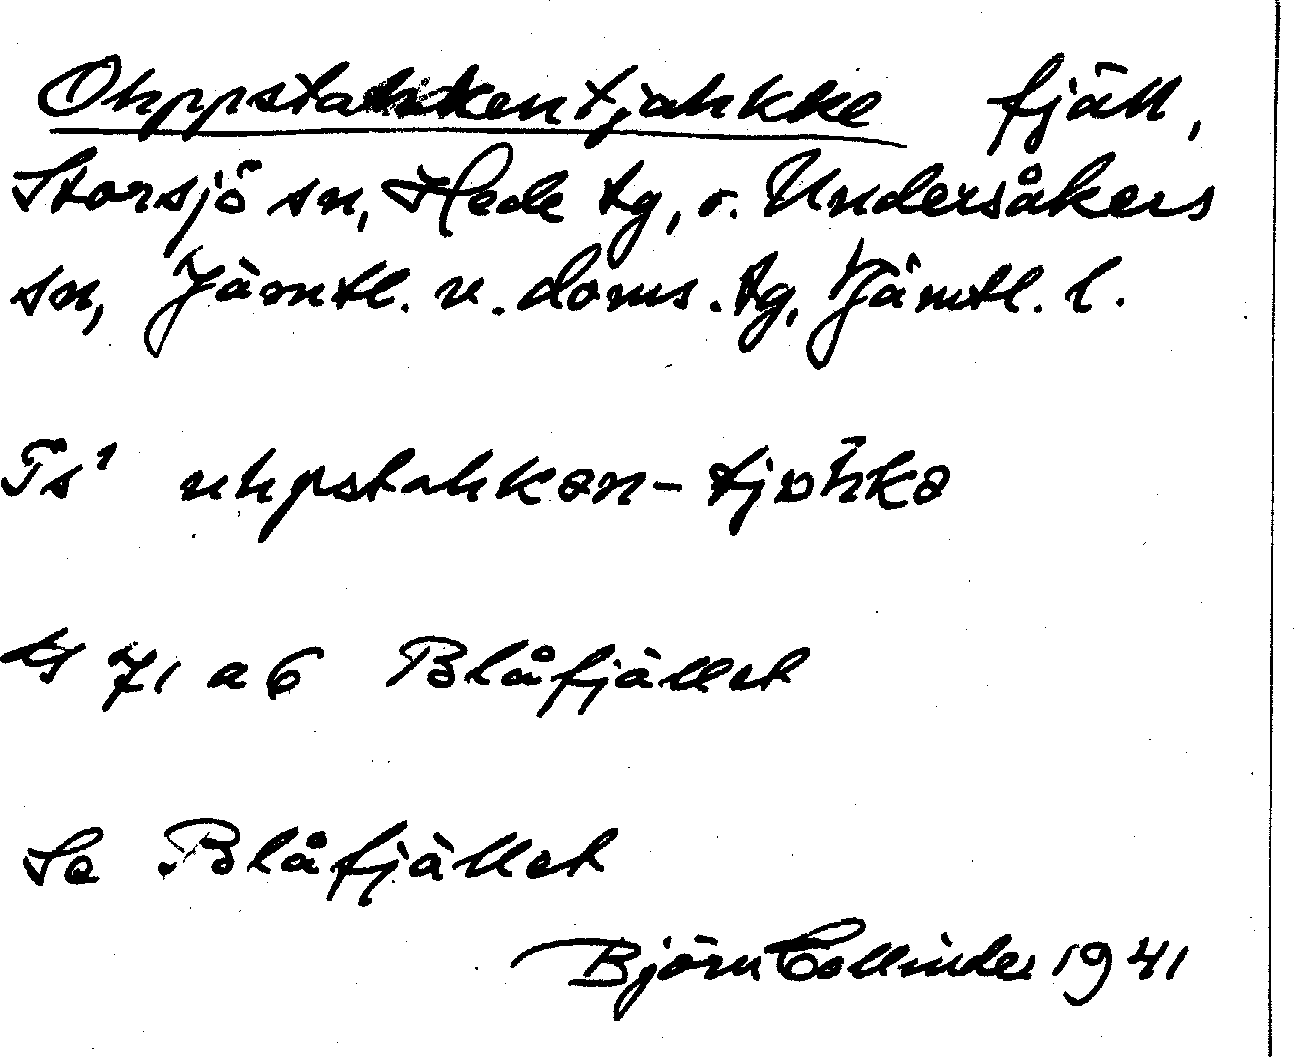 Ohppstahkentjahkke fjäll,
Storsjö sn, Hede tg, o. Undersåkers
sn, Jämtl. v. doms. tg, Jämtl. l.
Ts¹ uhpstahkən-tjɒh̄kə
71 a 6 Blåfjället
Se Blåfjället
Björn Collinder 1941